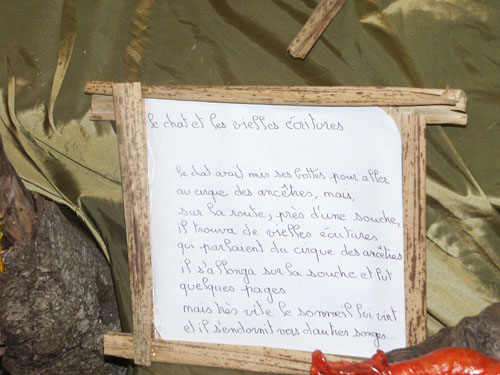 le chat et les vielles écritures
le chat avait mis ses bottes pour aller
au cirque des ancêtres, mais,
sur la route, près d'une souche,
il trouva de vielles écritures
qui parlaient du cirque des ancêtres
il s'allongea sur la souche et lut
quelques pages
mais très vite le sommeil lui vint
et il s'endormit vers d'autres songes...